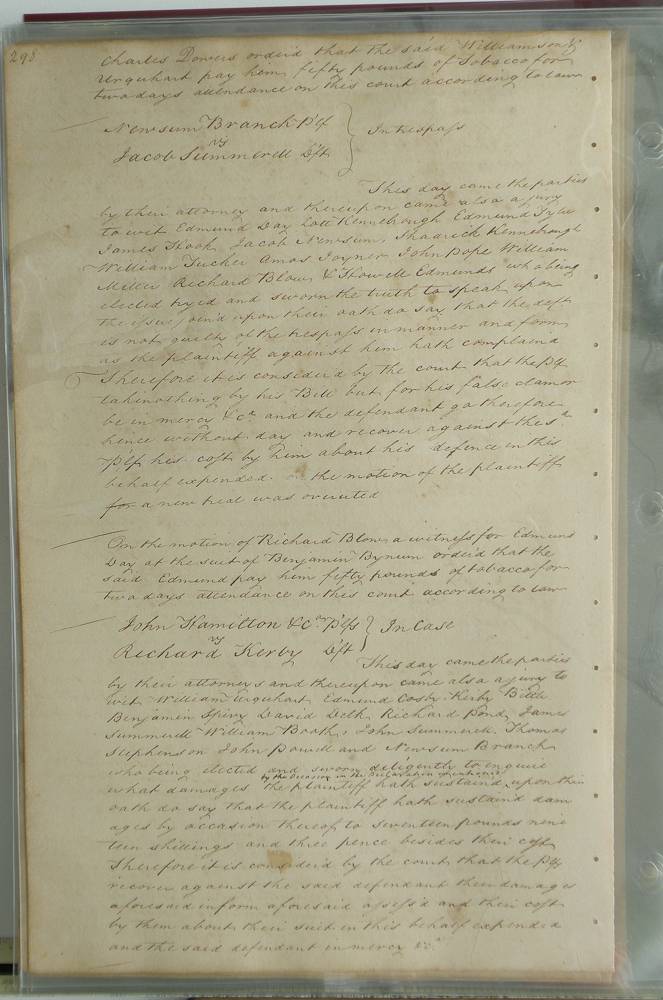 298
Charles Dowers order'd that the said Williamson &
Urquhart pay him fifty pounds of Tobacco for
two days attendance on this court according to law
Newsum Branch Plf
vs
Jacob Summerell Dft
In trespass
This day came the parties
by their attorney and thereupon came also a jury
to wit Edmund Day Lott Kennebrough Edmund Tyler
James Hook Jacob Newsum Shadrick Kennebrough
William Tucker Amos Joyner John Pope William
Miller Richard Blow & Howell Edmunds who being
elected tryed and sworn the truth to speak upon
the issue join'd upon their oath do say that the deft
is not guilty of the trespass in manner and form
as the plaintiff against him hath complaind
Therefore it is consider'd by the court that the Plf
take nothing by his Bill but for his false clamor
be in mercy &ca and the defendant go therefore
hence without day and recover against the sd
Plf his costs by him about his defence in this
behalf expended. the motion of the plaintiff
for a new trial was overruled
On the motion of Richard Blow a witness for Edmund
Day at the suit of Benjamin Bynum order'd that the
said Edmund pay him fifty pounds of tobacco for
two days attendance on this court according to law
John Hamilton & Co Plfs
vs
Richard Kerby Dft
In Case
This day came the parties
by their attorneys and thereupon came also a jury to
wit William Urquhart Edmund Cosby Kerby Bittle
Benjamin Spivy David Delk Richard Pond James
Summerell William Booth John Summerell Thomas
Stephenson John Powell and Newsum Branch
who being elected and sworn deligently to enquire
by the occasion in the declaration mentioned
what damages the plaintiff hath sustaind upon their
oath do say that the plaintiff hath sustain'd dam
ages by occasion thereof to seventeen pounds nine
teen shillings and three pence besides their costs
Therefore it is consider'd by the court that the Plf
recover against the said defendant their damages
aforesaid in form aforesaid assess'd and their costs
by them about their suit in this behalf expended
and the said defendant in mercy &ca